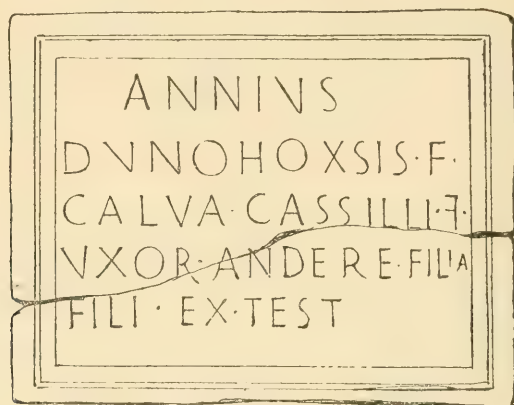 ANNIVS
DVNOHOXSIS·F·
CALVA·CASSILLI·F·
VXOR·ANDERE·FILIA
FILI·EX·TEST